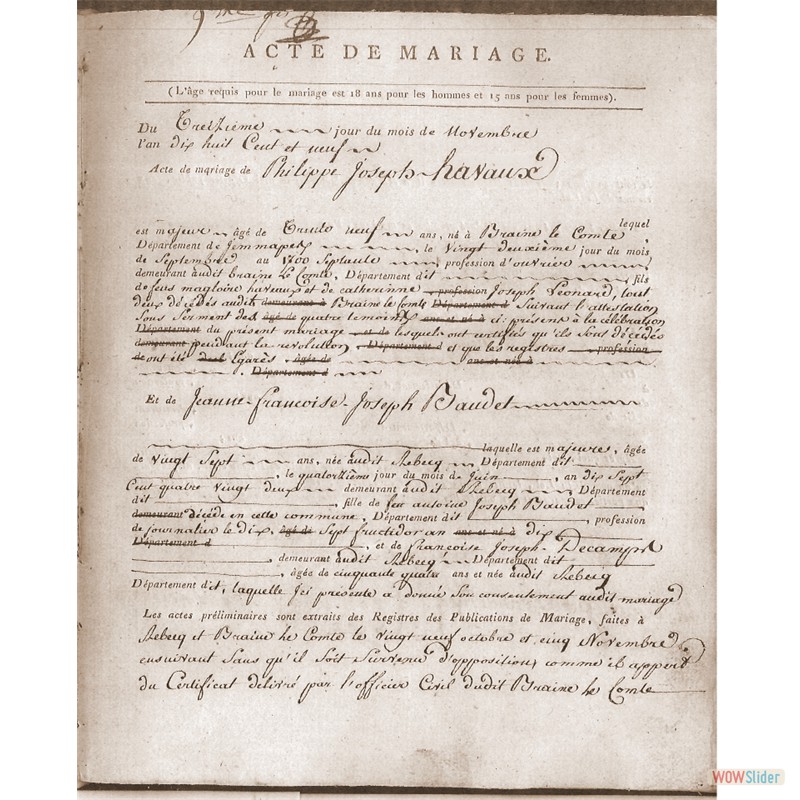 9me
ACTE DE MARIAGE.
(L'âge requis pour le mariage est 18 ans pour les hommes et 15 ans pour les femmes).
Du Treizième jour du mois de Novembre
l'an dix huit Cent et neuf
Acte de mariage de Philippe Joseph havaux
lequel
est majeur âgé de Trente neuf ans, né à Braine le Comte,
Département de Jemmapes, le Vingt deuxième jour du mois
de Septembre au 1700 Septante, profession d'ouvrier,
demeurant audit braine Le Comte, Département dit, fils
de feus magloire havaux et de catherinne profession Joseph Leonard, tout
deux décédés audit demeurant à Braine le Comte Département d Suivant l'attestation
Sous Serment des âgé de quatre temoins ans et né à ci présent à la célébration
Département du présent mariage et de lesquels ont certifiés qu'ils sont décédés
demeurant pendant la revolution, Département d et que les registres profession
de ont été Egarés âgée de ans et née à
Département d
Et de Jeanne françoise Joseph Baudet
laquelle est majeure, âgée
de vingt Sept ans, née audit Rebecq Département dit
, le quatorzième jour du mois de Juin, an dix Sept
Cent quatre vingt deux demeurant audit Rebecq Département
dit, fille de feu antoine Joseph Baudet
demeurant décédé en cette commune, Département dit, profession
de journalier le dix, âgé de Sept fructidor an ans et né à dix
Département d, et de françoise Joseph Decamps
, demeurant audit Rebecq Département dit
, âgée de cinquante quatre ans et née audit Rebecq
Département dit, laquelle Ici présente a donné Son consentement audit mariage
Les actes préliminaires sont extraits des Registres des Publications de Mariage, faites à
Rebecq et Braine Le Comte le vingt neuf octobre et cinq Novembre
ensuivant Sans qu'il Soit Survenu d'opposition, comme il appert
du Certificat délivré par l'officier Civil dudit Braine le Comte
WOWSlider